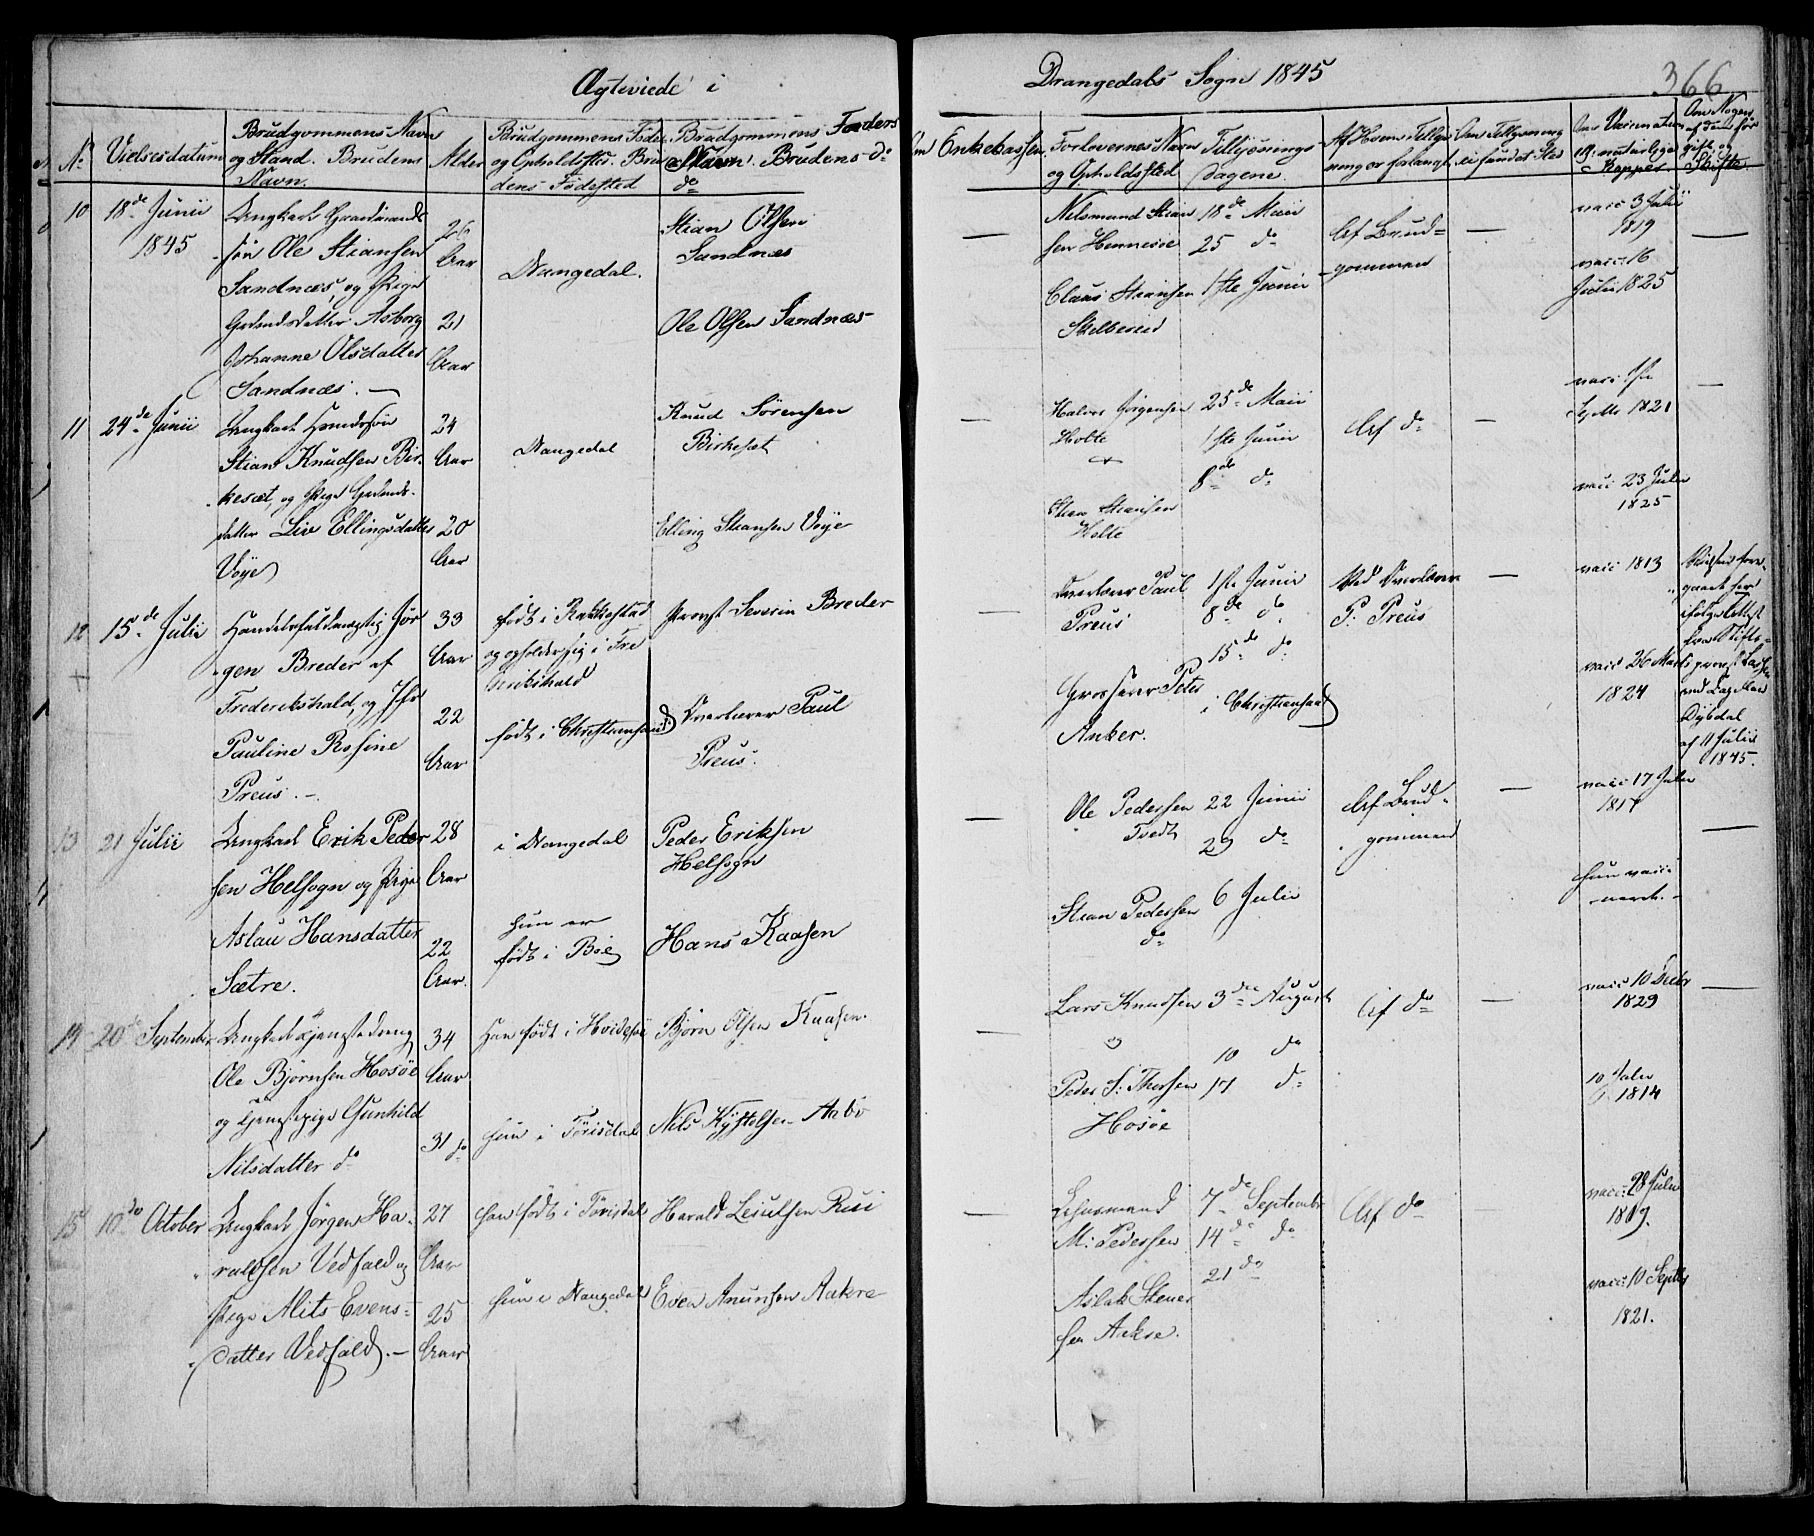 Ægteviede i Drangedals Sogn 1845
366
No
Vielsesdatum
Brudgommens Navn
og Stand. Brudens
Navn.
Alder
Brudgommens Føde
og Opholdssted. Bru
dens Fødested
Brudgommens Forders
Navn. Brudens do
do
Om Enkebrasen
Forlovernes Navn
og Opholdssted
Tillysnings-
dagene.
Af Hvem Tillys
ning er forlangt
Om Tillysning
ei fundet Sted
Om Vaccinatum
ell: naturlige
Kopper.
Om Nogen
af dem før
gift, og
Skifte
10
18de Junii
1845
Ungkarl Gaardmands
søn Ole Stiansen
Sandnæs, og Pige
Gaardmdsdatter Asborg
Johanne Olsdatter
Sandnæs. —
26
Aar
21
Aar
Drangedal.
Stian Olsen
Sandnæs
Ole Olsen Sandnæs
—
Nilsmund Stian
sen Henneseie
Claus Stiansen
18de Maii
25 do
1ste Junii
Af Brud-
gommen
—
vacc 3 Julii
1819
vacc: 16
Julii 1825
—
11
24de Junii
Ungkarl
Stian Knudsen Bir-
kesæt, og Pige
datter Liv Ellingsdatter
Voje
24
Aar
20
Aar
Drangedal
Knud Sørensen
Birkesæt
Elling Stiansen Voje
—
Halvor Jørgensen
Holte
Stian Stiansen
Holte
25de Maii
1ste Junii
8de do
Af do
—
vacc 1ste
Septbr 1821
vacc 23 Julii
1825
—
12
15de Julii
Handelsfuldmægtig Jør
gen Breder af
Frederikshald, og Jfr
Pauline Rosine
Preus. —
33
Aar
22
Aar
født i Rakkestad
og opholder sig i Fre
drikshald
født i Christiansand
Provst Severin Breder
Overlærer Paul
Preus.
—
Overlærer Paul
Preus
Grosserer Peter
Anker.
1ste Junii
8de do
15de do
i Christiansand
Ved Overlærer
P. Preus
—
vacc 1813
vacc 26 Marts
1824
Vielsen fore-
gaaet her
ifølge Attest
fra Stifts-
provst
Dybdal
af 11 Julii
1845.
13
21 Julii
Ungkarl Erik Peder
sen Helsogn og Pige
Aslau Hansdatter
Sætre.
28
Aar
22
Aar.
i Drangedal
hun er
født i Bøe
Peder Eriksen
Helsogn
Hans Kaasen
—
Ole Pedersen
Tvedt
Stian Pedersen
do
22 Junii
29 do
6 Julii
Af Brud-
gommen
—
vacc 17 Julii
1817
hun vacc:
—
14
20de September
Ungkarl Tjenestedreng
Ole Bjørnsen Hosøe
og Tjenestepige Gunhild
Nilsdatter do
34
Aar
31 do
Han født i Hvidesøe
hun i Tørisdal
Bjørn Olsen Kaasen.
Nils Kjøstolsen Aabø
—
Lars Knudsen
og
Peder S: Thorsen
Hosøe
3die August
10 do
17 do
Af do
—
vacc 10 Decbr
1829
10 Julii
1814
—
15
10de October
Ungkarl Jørgen Ha-
raldsen Vedfald og
Pige Alits Evens-
datter Vedfald. —
27
Aar
25
Aar
han født i Tørisdal
hun i Drangedal
Harald Leiulsen Rusi
Even Anunsen Aakre
—
Lehnsmand
M: Pedersen
Aslak Stener
sen Aakre.
7de September
14de do
21 do
Af do
vacc: 28 Julii
1819.
vacc: 10 Septbr
1821.